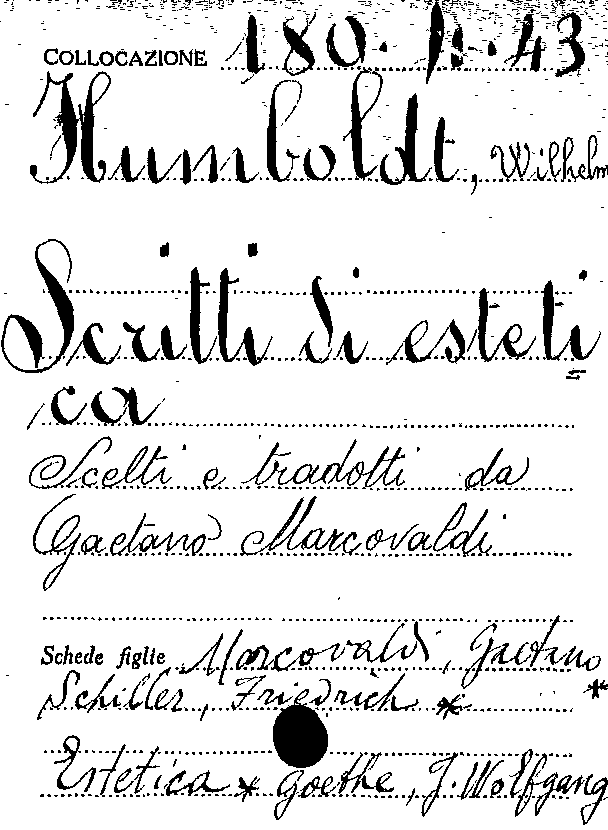 COLLOCAZIONE 180. H. 43
Humboldt, Wilhelm
Scritti di esteti=
ca
Scelti e tradotti da
Gaetano Marcovaldi
Schede figlie Marcovaldi, Gaetano *
Schiller, Friedrich *
Estetica * Goethe, J. Wolfgang